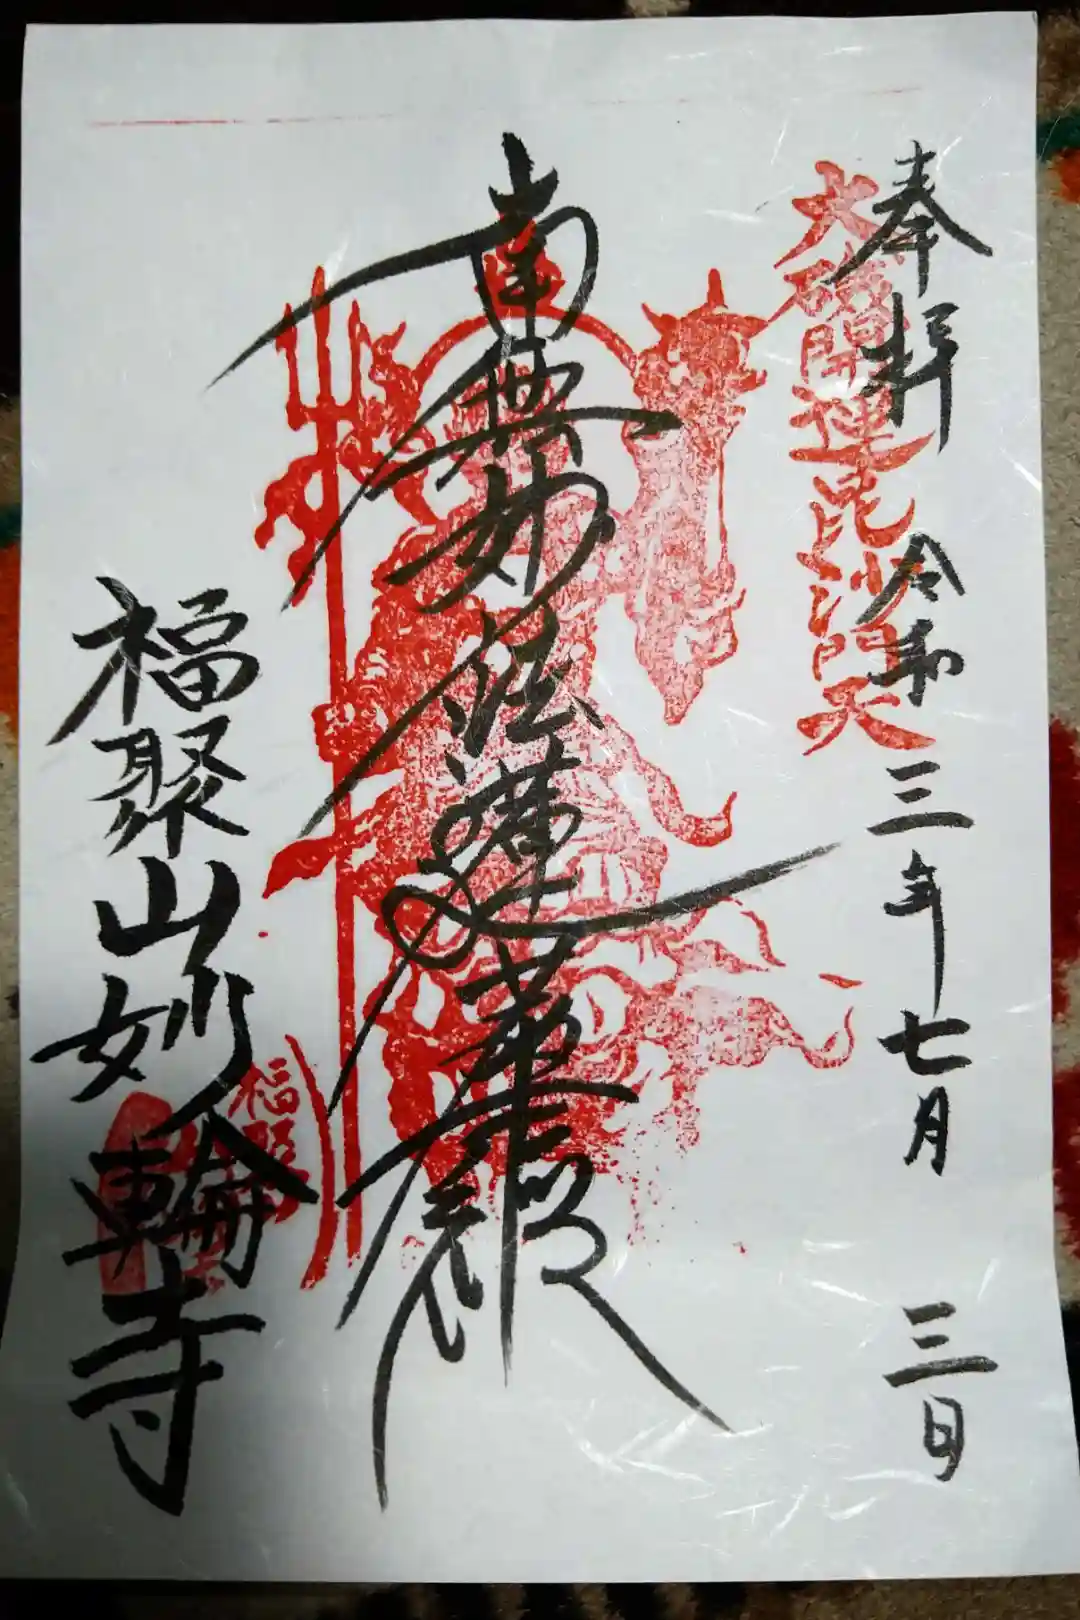 奉拝 令和三年七月三日
大磯開運毘沙門天
南無妙法蓮華経
福聚山妙輪寺
福聚